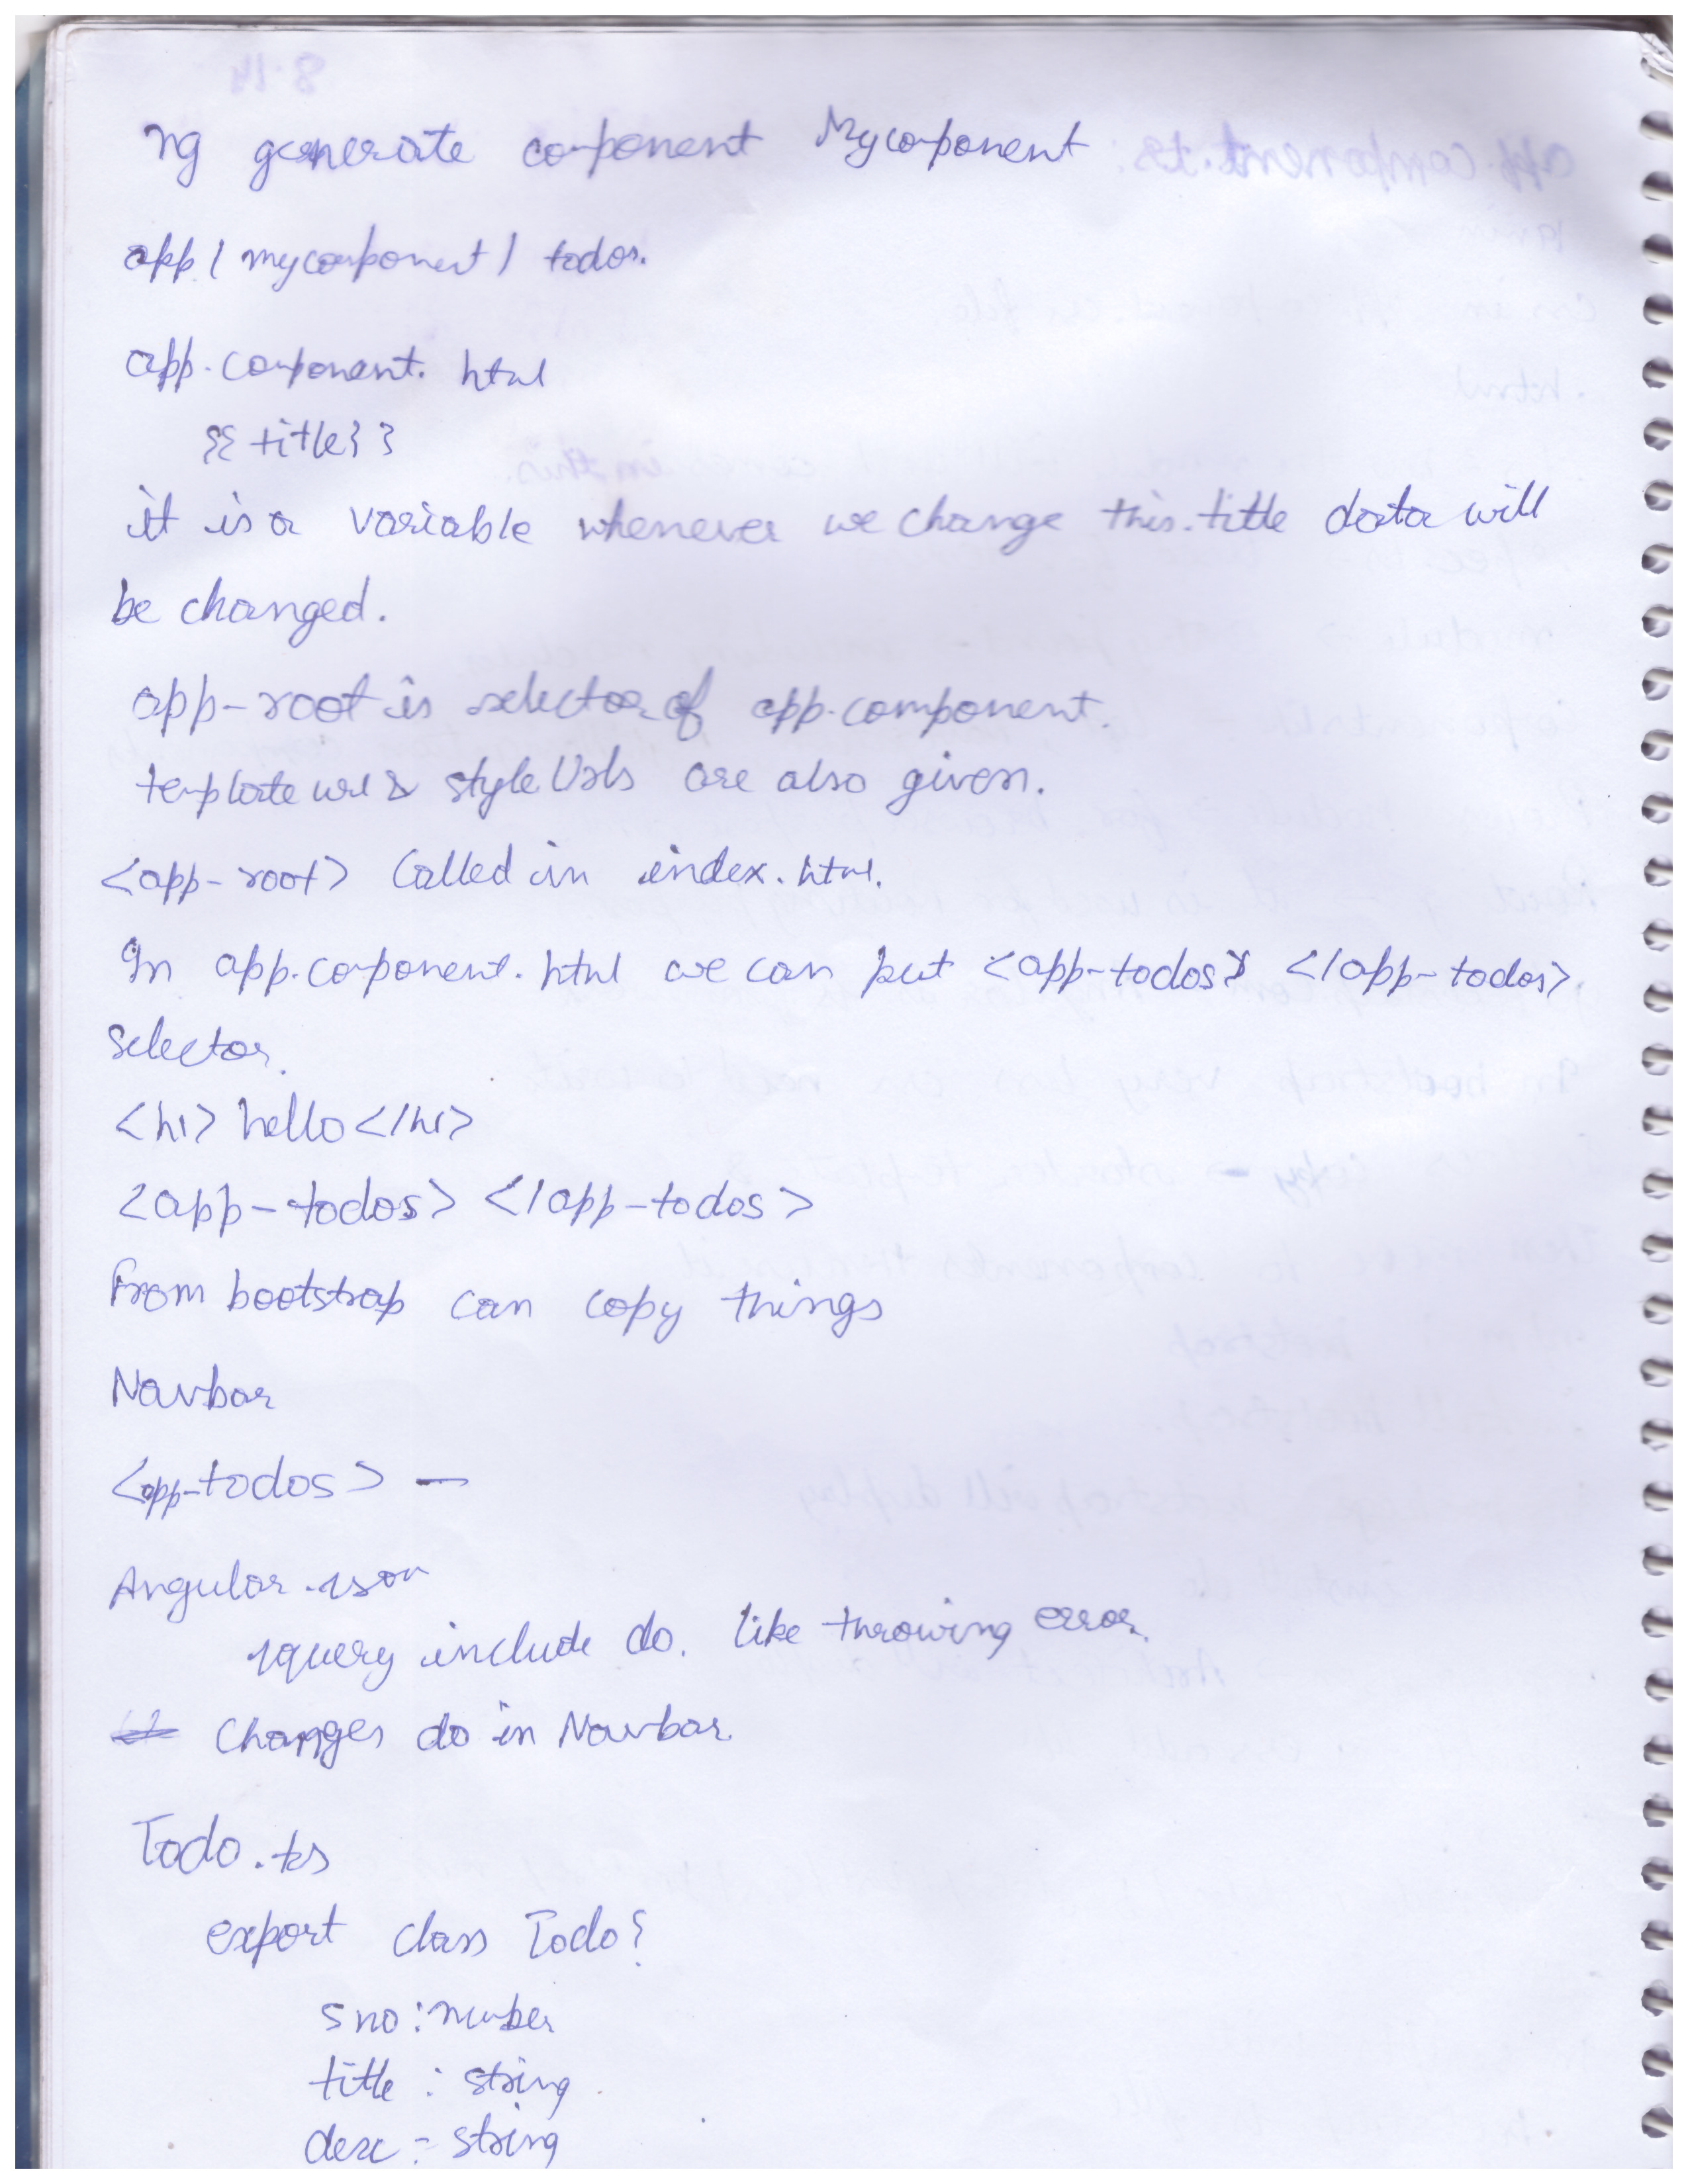 ng generate component Mycomponent
app / mycomponent / todos.
app.component.html
{{title}}
it is a variable whenever we change this.title data will
be changed.
app-root is selector of app.component.
template url & styleUrls are also given.
<app-root> Called in index.html.
In app.component.html we can put <app-todos> </app-todos>
selector.
<h1> hello </h1>
<app-todos> </app-todos>
From bootstrap can copy things
Navbar
<app-todos> —
Angular.json
jquery include do. like throwing error.
Changes do in Navbar.
Todo.ts
export class Todo{
sno : number
title : string
desc = string